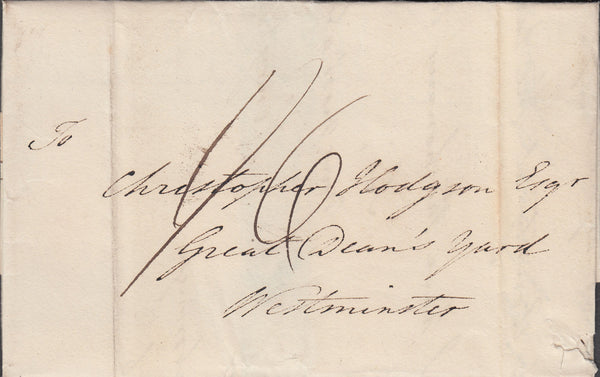 To
Christopher Hodgson Esqr
Great Dean's Yard
Westminster